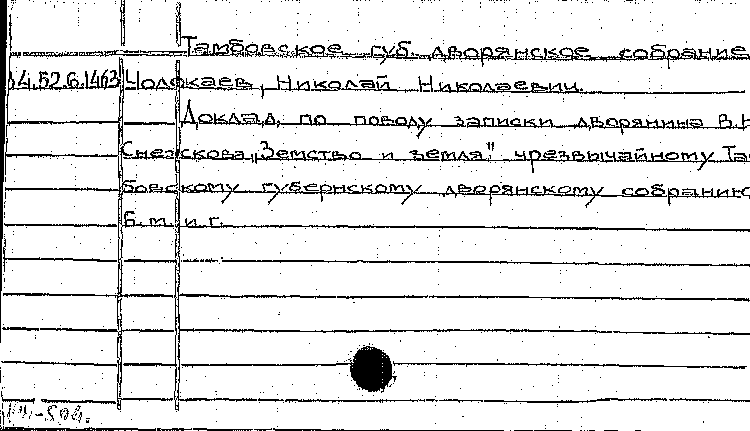 Тамбовское губ. дворянское собрание
34.52.6.1463 Чолокаев, Николай Николаевич.
Доклад по поводу записки дворянина В.Н
Снежкова „Земство и земля" чрезвычайному Там
бовскому губернскому дворянскому собранию
Б.м. и г.